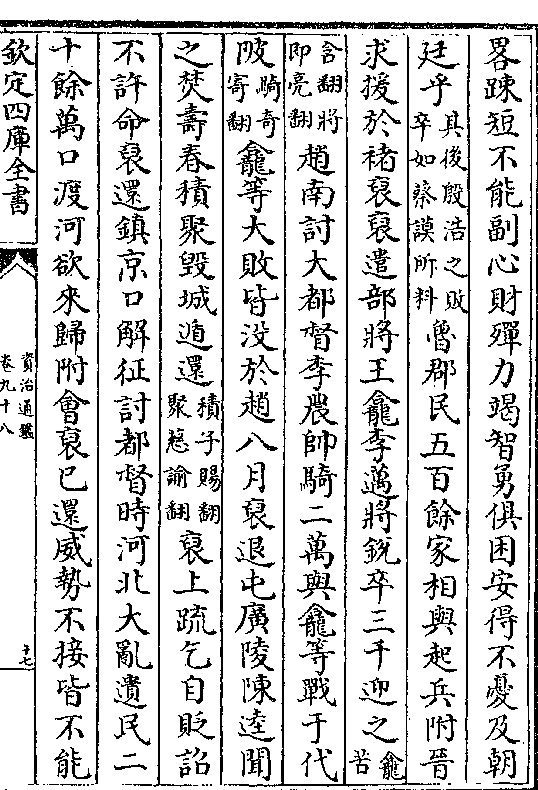 畧踈短不能副心財殫力竭智勇俱困安得不憂及朝
廷乎其後殷浩之敗卒如蔡謨所料魯郡民五百餘家相與起兵附晉
求援於褚裒裒遣部將王龕李邁將銳卒三千迎之龕苦
含翻將即亮翻趙南討大都督李農帥騎二萬與龕等戰于代
陂騎奇寄翻龕等大敗皆没於趙八月裒退屯廣陵陳逵聞
之焚壽春積聚毁城遁還積子賜翻聚慈諭翻裒上疏乞自貶詔
不許命裒還鎮京口解征討都督時河北大亂遺民二
十餘萬口渡河欲來歸附會裒已還威勢不接皆不能
欽定四庫全書
資治通鑑
卷九十八
十七